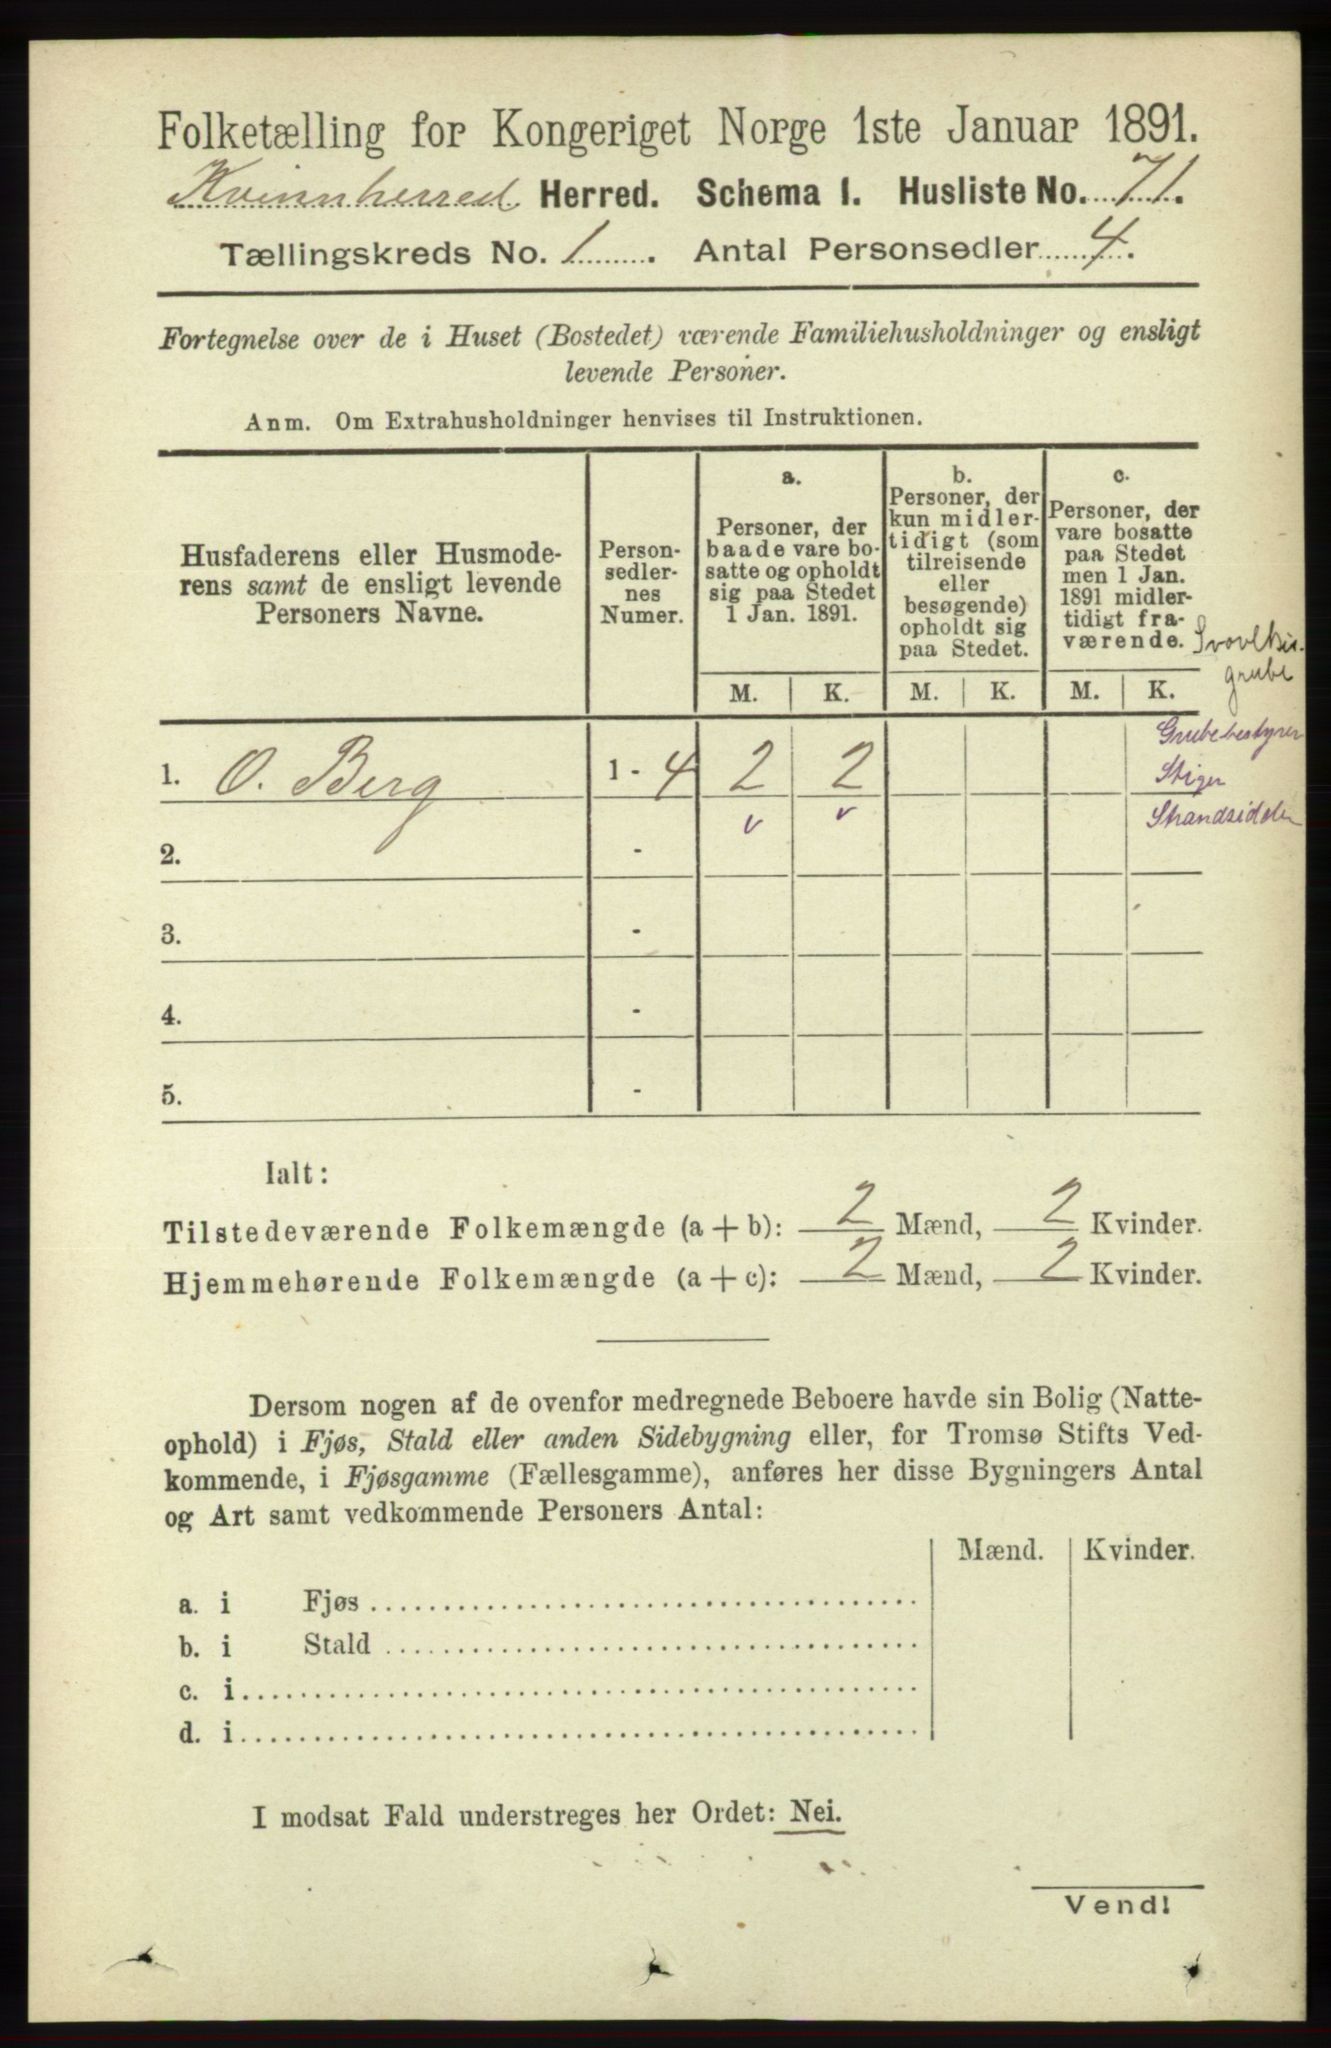 Folketælling for Kongeriget Norge 1ste Januar 1891.
Kvinnherred Herred. Schema I. Husliste No. 71.
Tællingskreds No. 1. Antal Personsedler 4.
Fortegnelse over de i Huset (Bostedet) værende Familiehusholdninger og ensligt
levende Personer.
Anm. Om Extrahusholdninger henvises til Instruktionen.
Husfaderens eller Husmode-
rens samt de ensligt levende
Personers Navne.
Person-
sedler-
nes
Numer.
a.
Personer, der
baade vare bo-
satte og opholdt
sig paa Stedet
1 Jan. 1891.
b.
Personer, der
kun midler-
tidigt (som
tilreisende
eller
besøgende)
opholdt sig
paa Stedet.
c.
Personer, der
vare bosatte
paa Stedet
men 1 Jan.
1891 midler-
tidigt fra-
værende.
Svovlkis-
grube
M. K. M. K. M. K.
Grubebestyrer
1. O. Berg 1 - 4 2 2
Stiger
Strandsidder
v v
2. -
3. -
4. -
5. -
Ialt:
Tilstedeværende Folkemængde (a + b): 2 Mænd, 2 Kvinder.
Hjemmehørende Folkemængde (a + c): 2 Mænd, 2 Kvinder.
Dersom nogen af de ovenfor medregnede Beboere havde sin Bolig (Natte-
ophold) i Fjøs, Stald eller anden Sidebygning eller, for Tromsø Stifts Ved-
kommende, i Fjøsgamme (Fællesgamme), anføres her disse Bygningers Antal
og Art samt vedkommende Personers Antal:
Mænd. Kvinder.
a. i Fjøs
b. i Stald
c. i
d. i
I modsat Fald understreges her Ordet: Nei.
Vend!